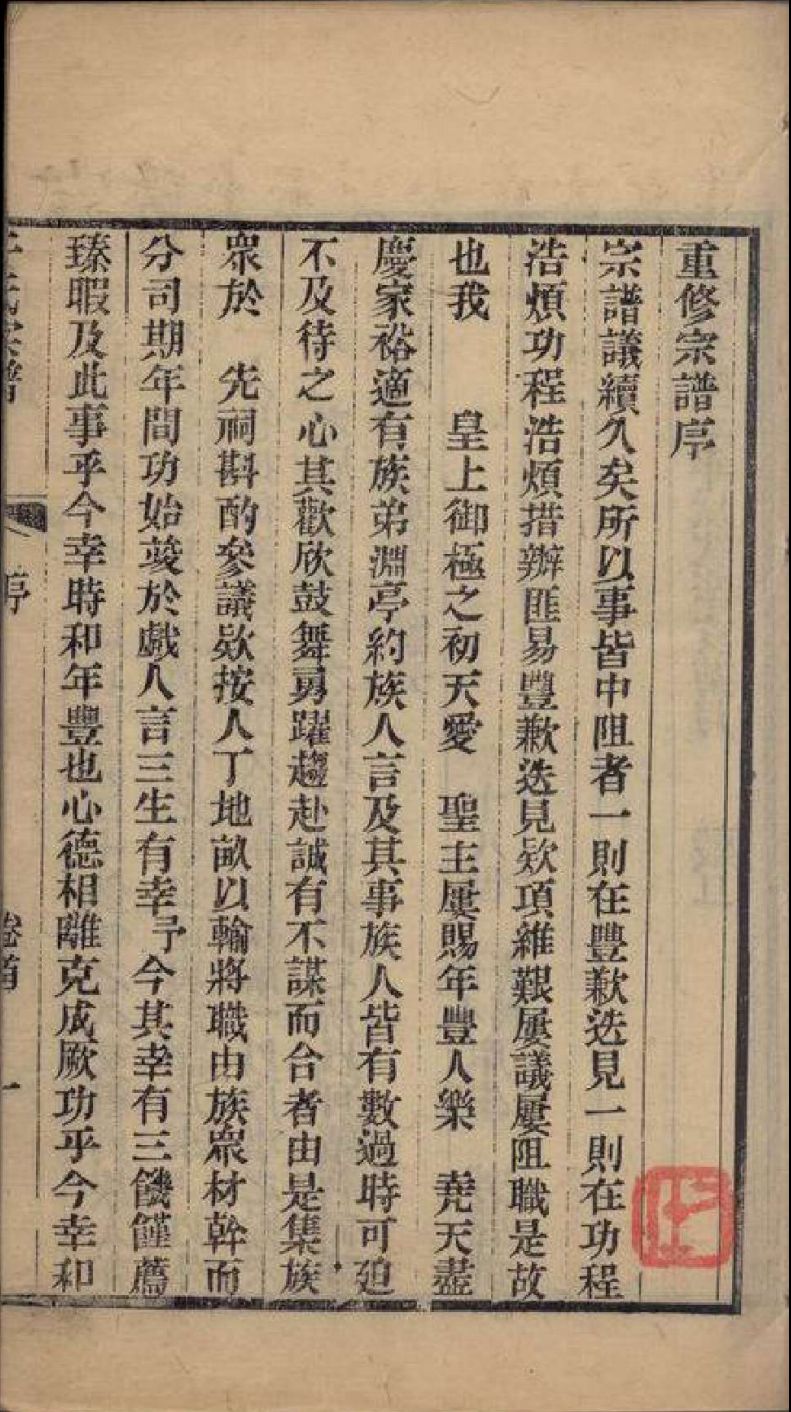 重修宗譜序
宗譜議續久矣所以事皆中阻者一則在豐歉迭見一則在功程
浩煩功程浩煩措辦匪易豐歉迭見欵項維艱屢議屢阻職是故
也我 皇上御極之初天愛 聖主屢賜年豐人樂 堯天盡
慶家裕適有族弟淵亭約族人言及其事族人皆有數過時可廹
不及待之心其歡欣鼓舞勇躍趨赴誠有不謀而合者由是集族
眾於 先祠斟酌參議欵按人丁地畝以輸將職由族眾材幹而
分司期年間功始竣於戲人言三生有幸予今其幸有三饑饉薦
臻暇及此事乎今幸時和年豐也心德相離克成厥功乎今幸和
氏宗譜 序 卷首 一